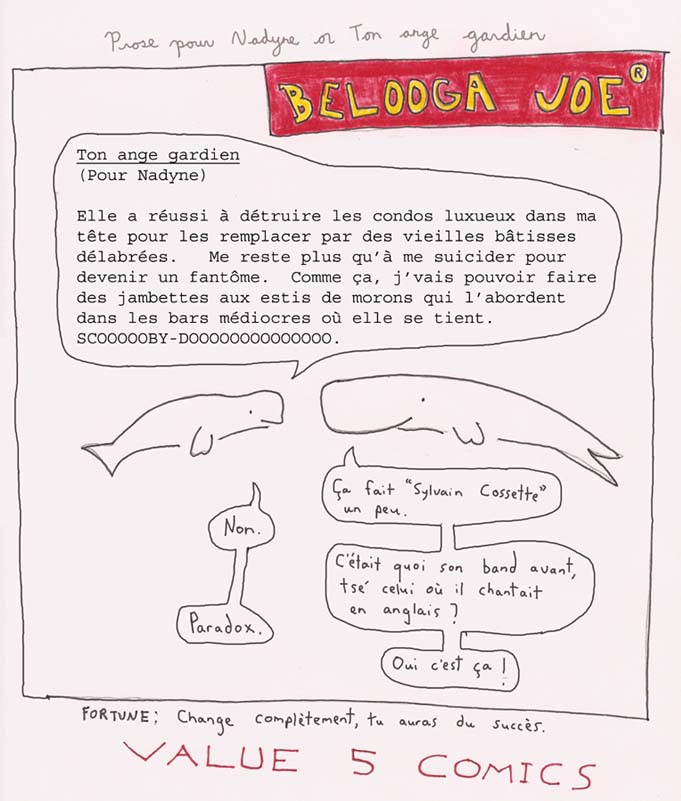 Prose pour Nadyne or Ton ange gardien
BELOOGA JOE®
Ton ange gardien
(Pour Nadyne)
Elle a réussi à détruire les condos luxueux dans ma
tête pour les remplacer par des vieilles bâtisses
délabrées.   Me reste plus qu'à me suicider pour
devenir un fantôme.  Comme ça, j'vais pouvoir faire
des jambettes aux estis de morons qui l'abordent
dans les bars médiocres où elle se tient.
SCOOOOOBY-DOOOOOOOOOOOOOO.
Ça fait "Sylvain Cossette"
un peu.
Non.
C'était quoi son band avant,
tsé celui où il chantait
en anglais ?
Paradox.
Oui c'est ça !
FORTUNE; Change complètement, tu auras du succès.
VALUE 5 COMICS